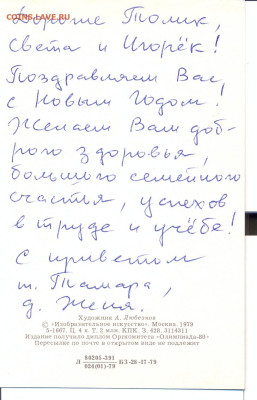 COINS.LAVE.RU
Дорогие Толик,
Света и Игорёк!
Поздравляем Вас
с Новым Годом!
Желаем Вам доб-
рого здоровья,
большого семейного
счастья, успехов
в труде и учёбе!
С приветом
т. Тамара,
д. Женя.
Художник А. Любезнов
© «Изобразительное искусство». Москва. 1979
5-1667. Ц. 4 к. Т. 2 млн. КПК. З. 428. 3114311
Издание получило диплом Оргкомитета «Олимпиада-80»
Пересылке по почте в открытом виде не подлежит
Л 80205-291 БЗ-28-37-79
024(01)-79